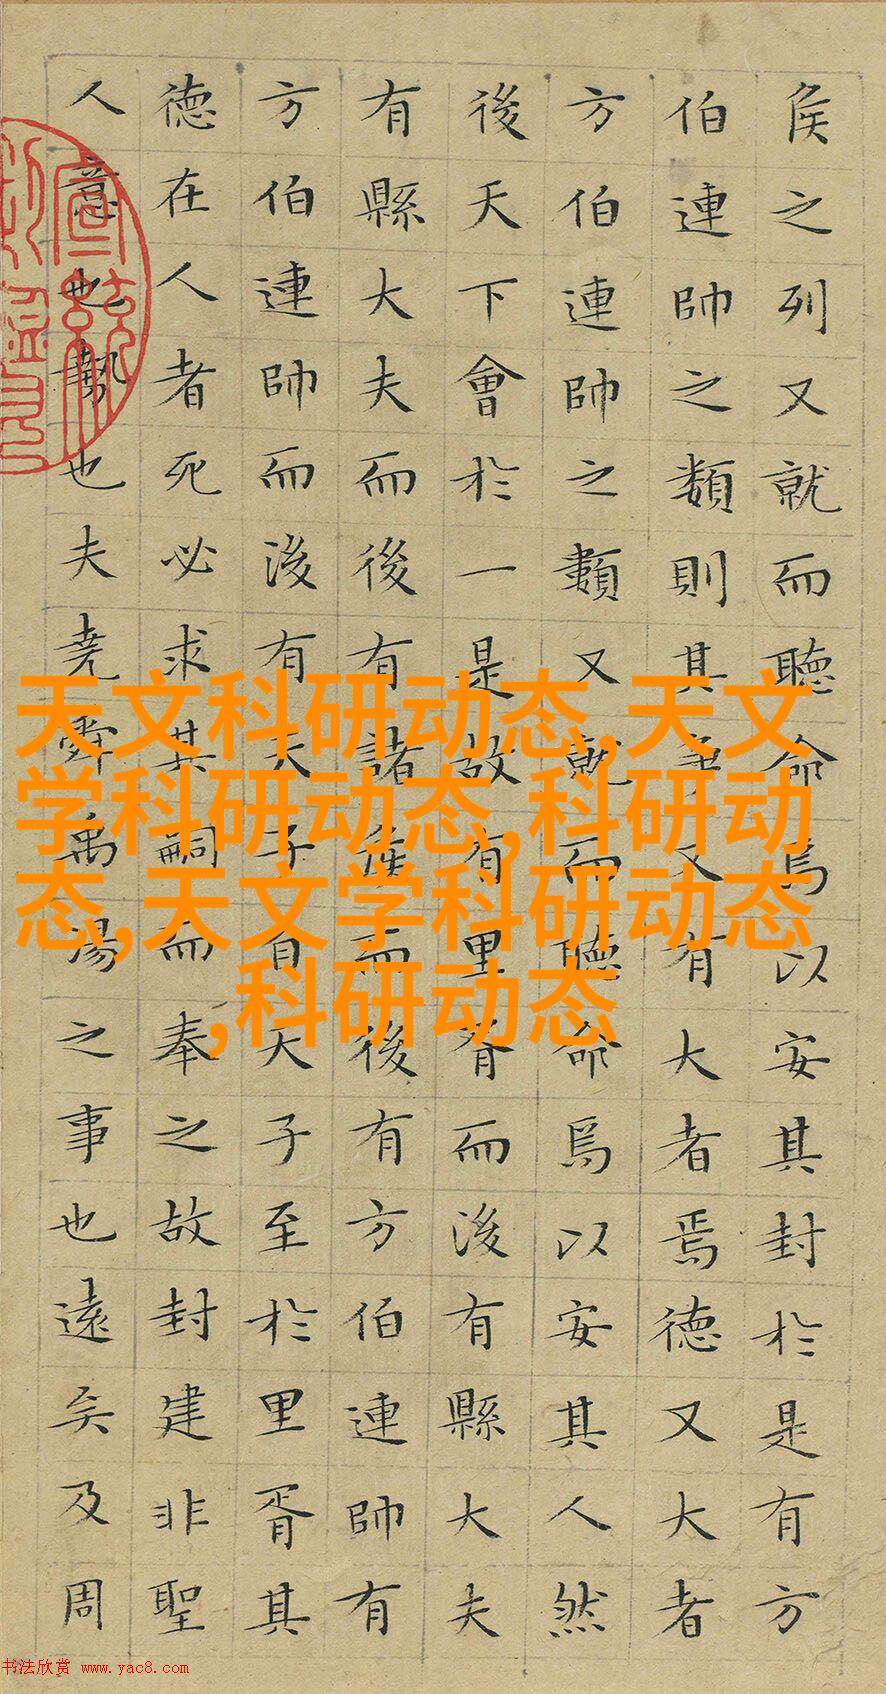 侯之列又就而聽命焉以安其封於是有方
伯連帥之類則其爭又有大者焉德又大者
方伯連帥之類又就而聽命焉以安其人然
後天下會於一是故有里胥而後有縣大夫
有縣大夫而後有諸侯而後有方伯連帥有
方伯連帥而後有天子自天子至於里胥其
德在人者死必求其嗣而奉之故封建非聖
人意也勢也夫堯舜禹湯之事也遠矣及周
天文科研动态,天文
学科研动态,科研动
态,天文学科研动态
,科研动态
书法欣赏 www.yac8.com